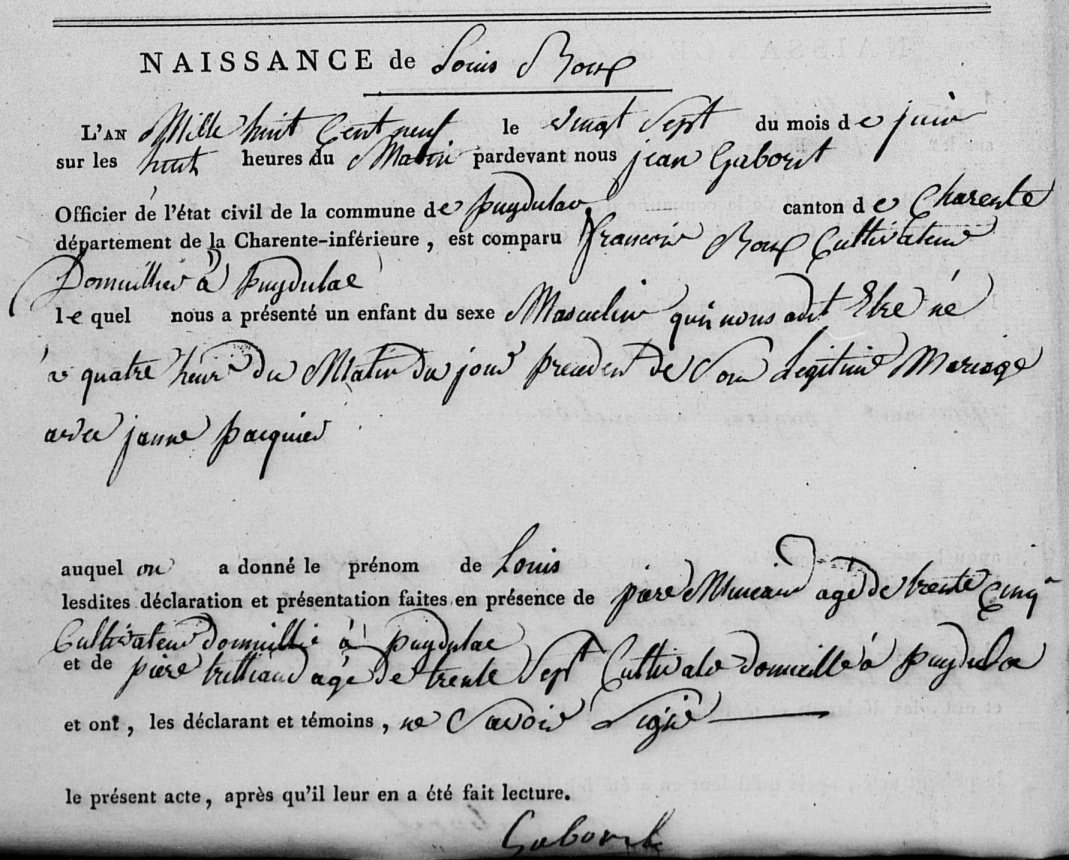 NAISSANCE de Louis Roux
L'AN Mille huit Cent neuf le vingt Sept du mois de juin
sur les huit heures du Matin pardevant nous jean Gaborit
Officier de l'état civil de la commune de puydulac canton de Charente
département de la Charente-inférieure, est comparu francois Roux Cultivateur
Domicillier à puydulac
lequel nous a présenté un enfant du sexe Masculin qui nous adit Etre né
a quatre heure du Matin du jour precedent de Son Legitime Mariage
avec janne pacquier
auquel on a donné le prénom de Louis
lesdites déclaration et présentation faites en présence de piere agé de trente Cinq
Cultivateur domicillié à puydulac
et de piere agé de trente Sept Cultivate domicillé à puydulac
et ont, les déclarant et témoins, ne Savoir Signé
le présent acte, après qu'il leur en a été fait lecture.
Gaborit